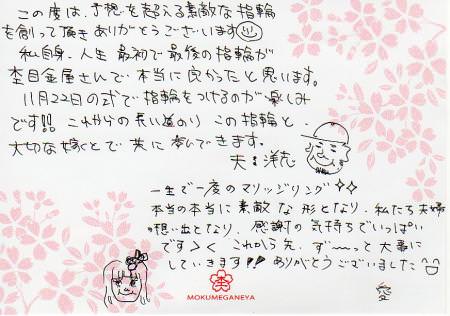 この度は、予想を超える素敵な指輪
を創って頂きありがとうございます
私自身、人生最初で最後の指輪が
杢目金屋さんで本当に良かったと思います。
11月22日の式で指輪をつけるのが楽しみ
です!! これからの長い道のり この指輪と、
大切な嫁とで共に歩んできます。
夫:洋志
一生で一度のマリッジリング
本当の本当に素敵な形となり、私たち夫婦
の想い出となり、感謝の気持ちでいっぱい
です>< これから先、ず〜〜っと大事に
していきます!! ありがとうございました
愛
MOKUMEGANEYA